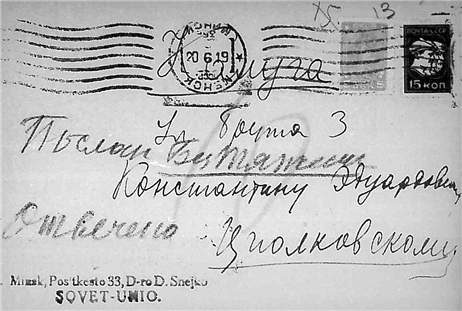 15 13
МИНСК
20.6.19
ПОЧТА СССР
15 КОП
Калуга
Ул Брута 3
Послан
Константину Эдуардовичу
Отвечено
Циолковскому
Minsk, Poŝtkesto 33, D-ro D. Snejko
SOVET-UNIO.